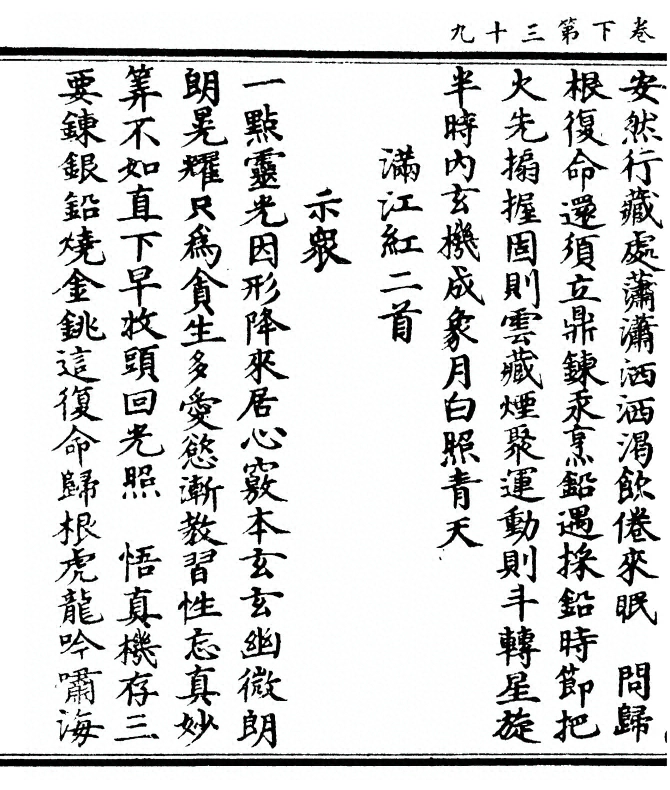 卷下第三十九
安然行藏處蕭瀟洒洒渴飲倦來眠　問歸
根復命還須立鼎鍊汞烹鉛遇採鉛時節把
火先搧握固則雲藏煙聚運動則斗轉星旋
半時內玄機成象月白照青天
滿江紅二首
示衆
一點靈光因形降來居心竅本玄玄幽微朗
朗晃耀只為貪生多愛慾漸教習性忘真妙
筭不如直下早牧頭回光照　悟真機存三
要鍊銀鉛燒金銚這復命歸根虎龍吟嘯海